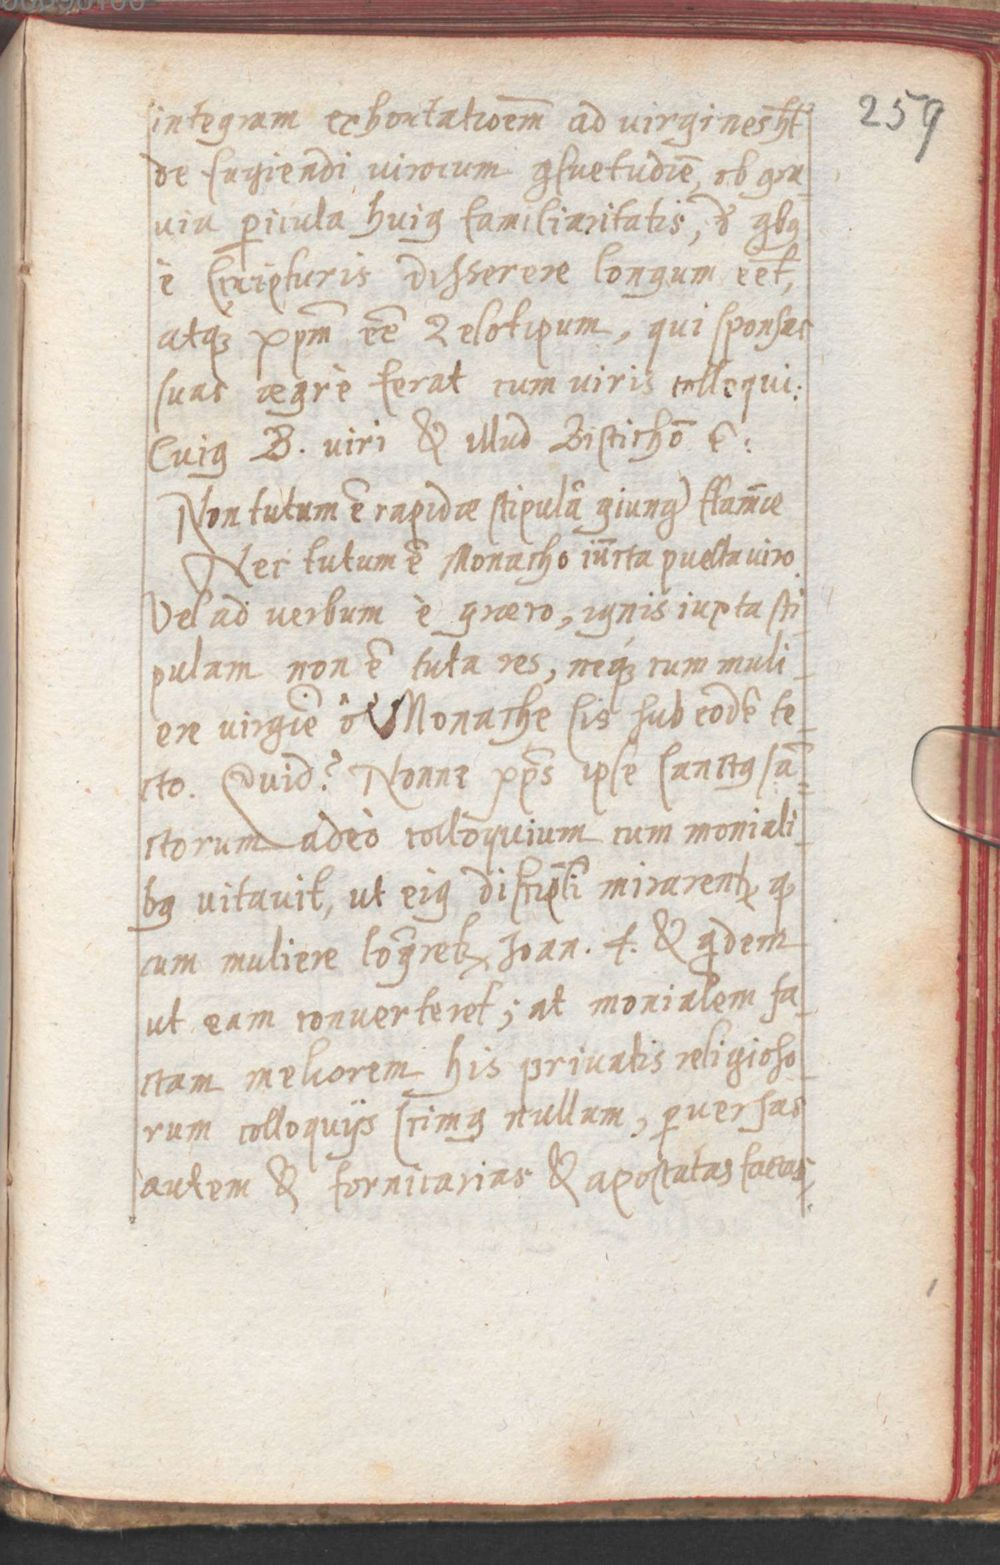 259
integram exhortatioēm ad virgines ht̄
de fugiendi virorum gsuetudiē, ob gra-
via picula huig familiaritatis, de qbg
è scripturis disserere longum eēt,
atq; xp̄m eē Zelotipum, qui sponsas
suas ægrè ferat cum viris colloqui:
Cuig B. viri & illud Distichō ē:
Non tutum ē rapidæ stipulā giung) flam̄æ
Nec tutum ē Monacho iūcta puella viro.
Vel ad verbum è græco, ignis iuxta sti-
pulam non ē tuta res, neq; cum muli-
ere virgiē ô Monache sis sub eodē te-
cto. Quid? Nonne xp̄s ipse sanctg sā=
ctorum adeò colloquium cum moniali-
bg vitavit, ut eig discipli mirarent q
cum muliere loqret, Joan. 4. & qdem
ut eam converteret; at monialem fa-
ctam meliorem his privatis religioso-
rum colloquijs scimg nullam, pversas
autem & fornicarias & apostatas factas,